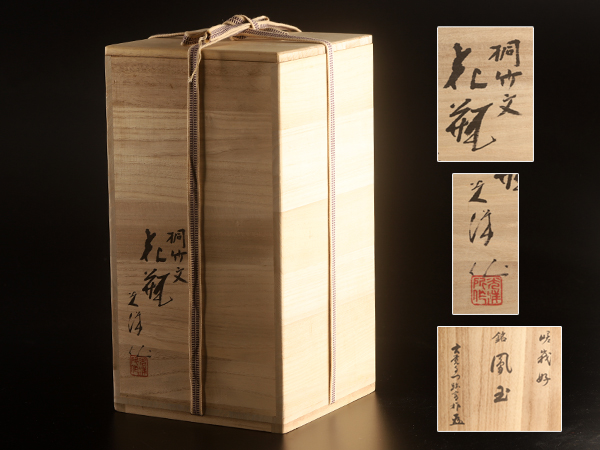 桐竹文
花瓶
光洋作
桐竹文
花瓶
光洋作
嵯峨好
銘
鳳玉